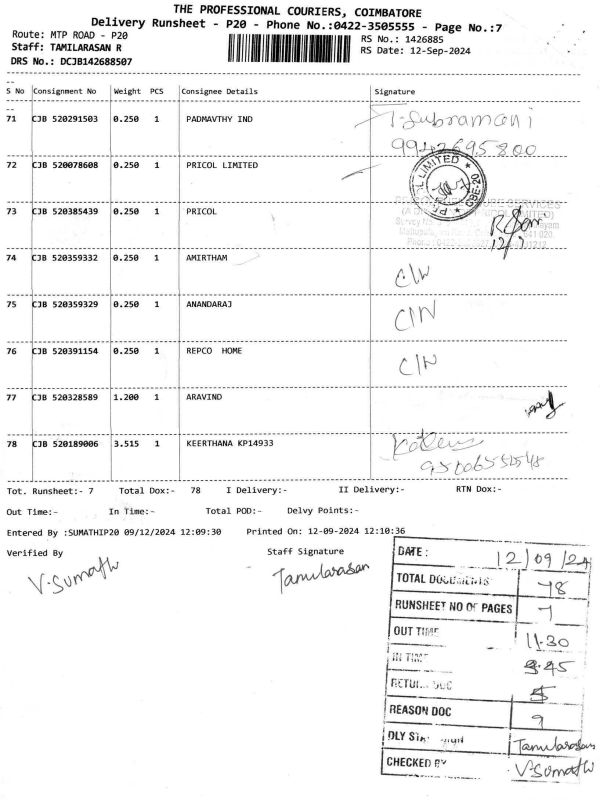 THE PROFESSIONAL COURIERS, COIMBATORE
Delivery Runsheet - P20 - Phone No.:0422-3505555 - Page No.:7
Route: MTP ROAD - P20
RS No.: 1426885
Staff: TAMILARASAN R
RS Date: 12-Sep-2024
DRS No.: DCJB142688507
S No Consignment No Weight PCS Consignee Details Signature
71 CJB 520291503 0.250 1 PADMAVTHY IND T. Subramani
9942695800
72 CJB 520078608 0.250 1 PRICOL LIMITED
PRICOL LIMITED ★ CBE-20 ★
73 CJB 520385439 0.250 1 PRICOL
74 CJB 520359332 0.250 1 AMIRTHAM C/N
75 CJB 520359329 0.250 1 ANANDARAJ C/N
76 CJB 520391154 0.250 1 REPCO HOME C/N
77 CJB 520328589 1.200 1 ARAVIND
78 CJB 520189006 3.515 1 KEERTHANA KP14933
Tot. Runsheet:- 7 Total Dox:- 78 I Delivery:- II Delivery:- RTN Dox:-
Out Time:- In Time:- Total POD:- Delvy Points:-
Entered By :SUMATHIP20 09/12/2024 12:09:30 Printed On: 12-09-2024 12:10:36
Verified By Staff Signature
V. Sumathi Tamilarasan
DATE : 12/09/24
TOTAL DOCUMENTS 78
RUNSHEET NO OF PAGES 7
OUT TIME 11.30
IN TIME 3.45
RETURN DOC 5
REASON DOC 9
DLY STAFF SIGN Tamilarasan
CHECKED BY V. Sumathi